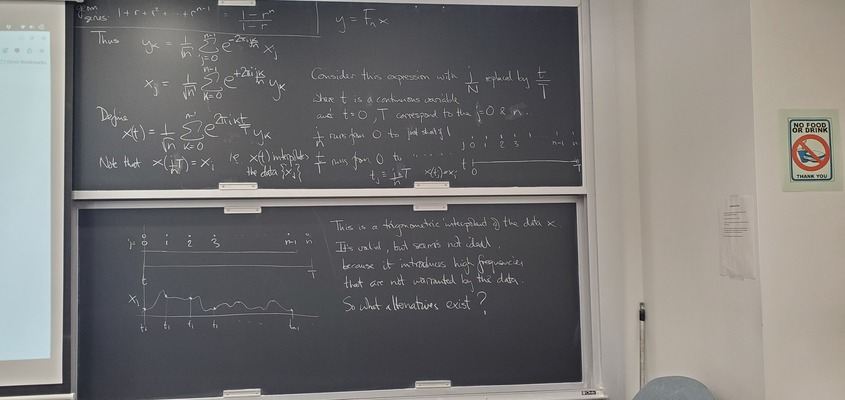 series: 1 + r + r² + ... + r^{n-1} = \frac{1-r^n}{1-r}
y = F_n x
Thus y_k = \frac{1}{\sqrt{n}} \sum_{j=0}^{n-1} e^{-2πijk/n} x_j
x_j = \frac{1}{\sqrt{n}} \sum_{k=0}^{n-1} e^{+2πijk/n} y_k
Define
x(t) = \frac{1}{\sqrt{n}} \sum_{k=0}^{n-1} e^{2πikt/T} y_k
Note that x(\frac{j}{n}T) = x_j i.e. x(t) interpolates
the data {x_j}
Consider this expression with \frac{j}{N} replaced by \frac{t}{T}
where t is a continuous variable
and t=0, T correspond to the j=0 & n.
\frac{j}{n} runs from 0 to just short of 1
\frac{t}{T} runs from 0 to ......
t_j = \frac{j}{n}T x(t_j)=x_j
j 0 1 2 3 n-1 n
t 0 T
j= 0 1 2 3 n-1 n
t T
x_j
t_0 t_1 t_2 t_3 ... t_{n-1}
This is a trigonometric interpolant of the data x.
It's valid, but seems not ideal,
because it introduces high frequencies
that are not warranted by the data.
So what alternatives exist?
NO FOOD
OR DRINK
THANK YOU